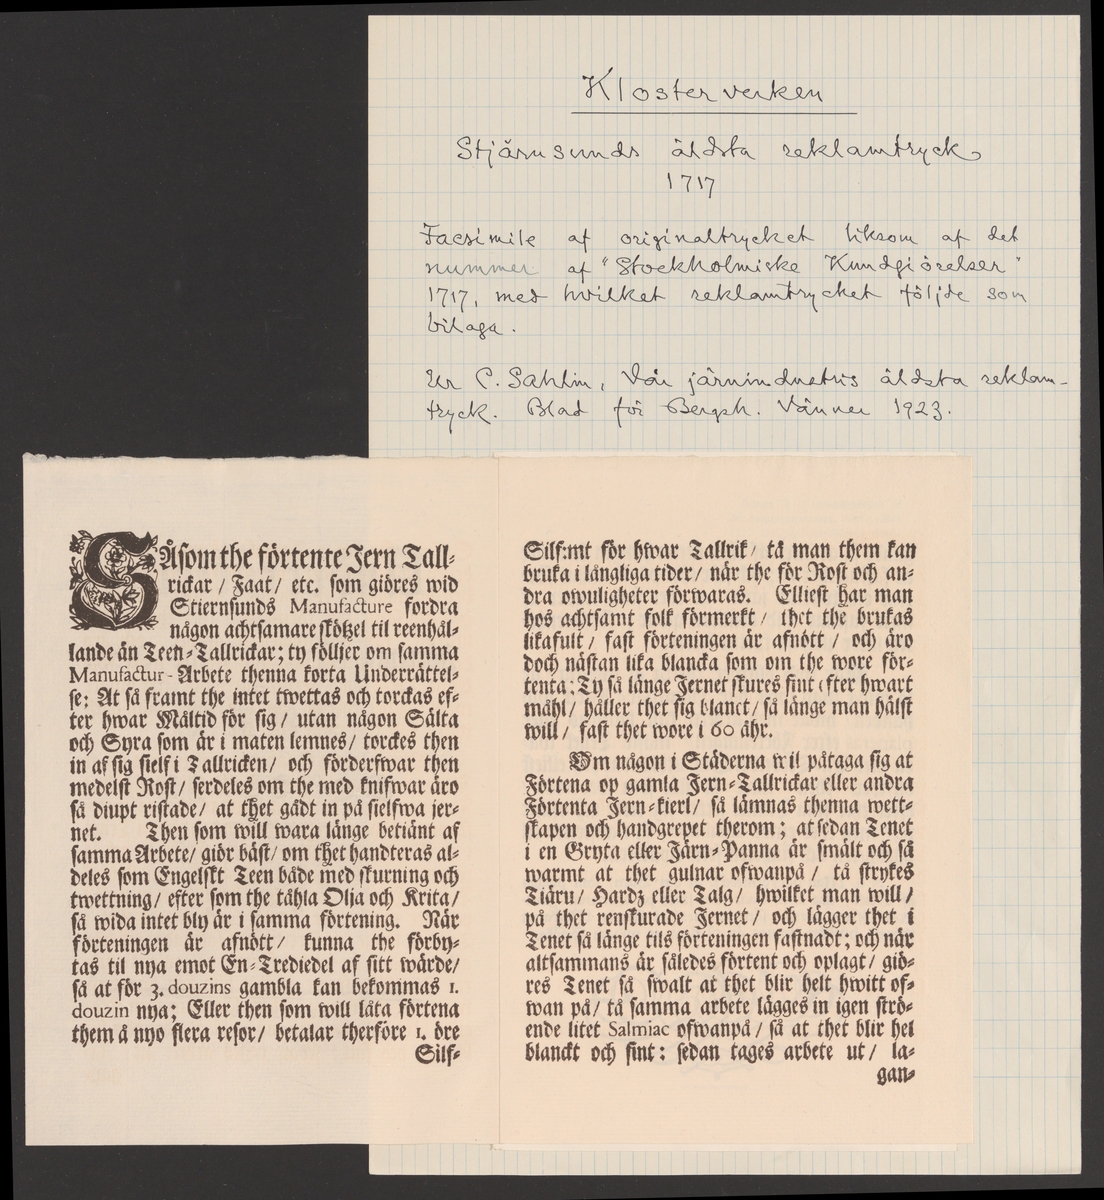 Klosterverken
Stjärnsunds äldsta reklamtryck
1717
Facsimile af originaltrycket liksom af det
nummer af "Stockholmiske Kundgiörelser"
1717, med hvilket reklamtrycket följde som
bilaga.
Ur C. Sahlin, Vår järnindustris äldsta reklam-
tryck. Blad för Bergsh. Vänner 1923.
SÅsom the förtente Jern Tall-
rickar / Faat / etc. som giöres wid
Stiernsunds Manufacture fordra
någon achtsamare skötzel til reenhål-
lande än Teen-Tallrickar; ty föllier om samma
Manufactur-Arbete thenna korta Underrättel-
se: At så framt the intet twettas och torckas ef-
ter hwar Måltid för sig / utan någon Sälta
och Syra som är i maten lemnes / torckes then
in af sig sielf i Tallricken / och förderfwar then
medelst Rost / serdeles om the med knifwar äro
så diupt ristade / at thet gådt in på sielfwa jer-
net. Then som will wara länge betiänt af
samma Arbete / giör bäst / om thet handteras al-
deles som Engelskt Teen både med skurning och
twettning / efter som the tåhla Olja och Krita /
så wida intet bly är i samma förtening. När
förteningen är afnött / kunna the förby-
tas til nya emot En-Trediedel af sitt wärde /
så at för 3. douzins gambla kan bekommas 1.
douzin nya; Eller then som will låta förtena
them å nyo flera resor / betalar therföre 1. öre
Silf-
Silf:mt för hwar Tallrik / tå man them kan
bruka i långliga tider / när the för Rost och an-
dra owuligheter förwaras. Elliest har man
hos achtsamt folk förmerkt / thet the brukas
likafult / fast förteningen är afnött / och äro
doch nästan lika blancka som om the wore för-
tenta; Ty så länge Jernet skures fint efter hwart
måhl / håller thet sig blanct / så länge man hälst
will / fast thet wore i 60 åhr.
Om någon i Städerna wil påtaga sig at
Förtena op gamla Jern-Tallrickar eller andra
Förtenta Jern-kierl / så lämnas thenna wett-
skapen och handgrepet therom; at sedan Tenet
i en Gryta eller Järn-Panna är smält och så
warmt at thet gulnar ofwanpå / tå strykes
Tiäru / Hardz eller Talg / hwilket man will /
på thet renskurade Jernet / och lägger thet i
Tenet så länge tils förteningen fastnadt; och när
altsammans är således förtent och oplagt / giö-
res Tenet så swalt at thet blir helt hwitt of-
wan på / tå samma arbete lägges in igen strö-
ende litet Salmiac ofwanpå / så at thet blir hel
blanckt och fint: sedan tages arbete ut / la-
gan-